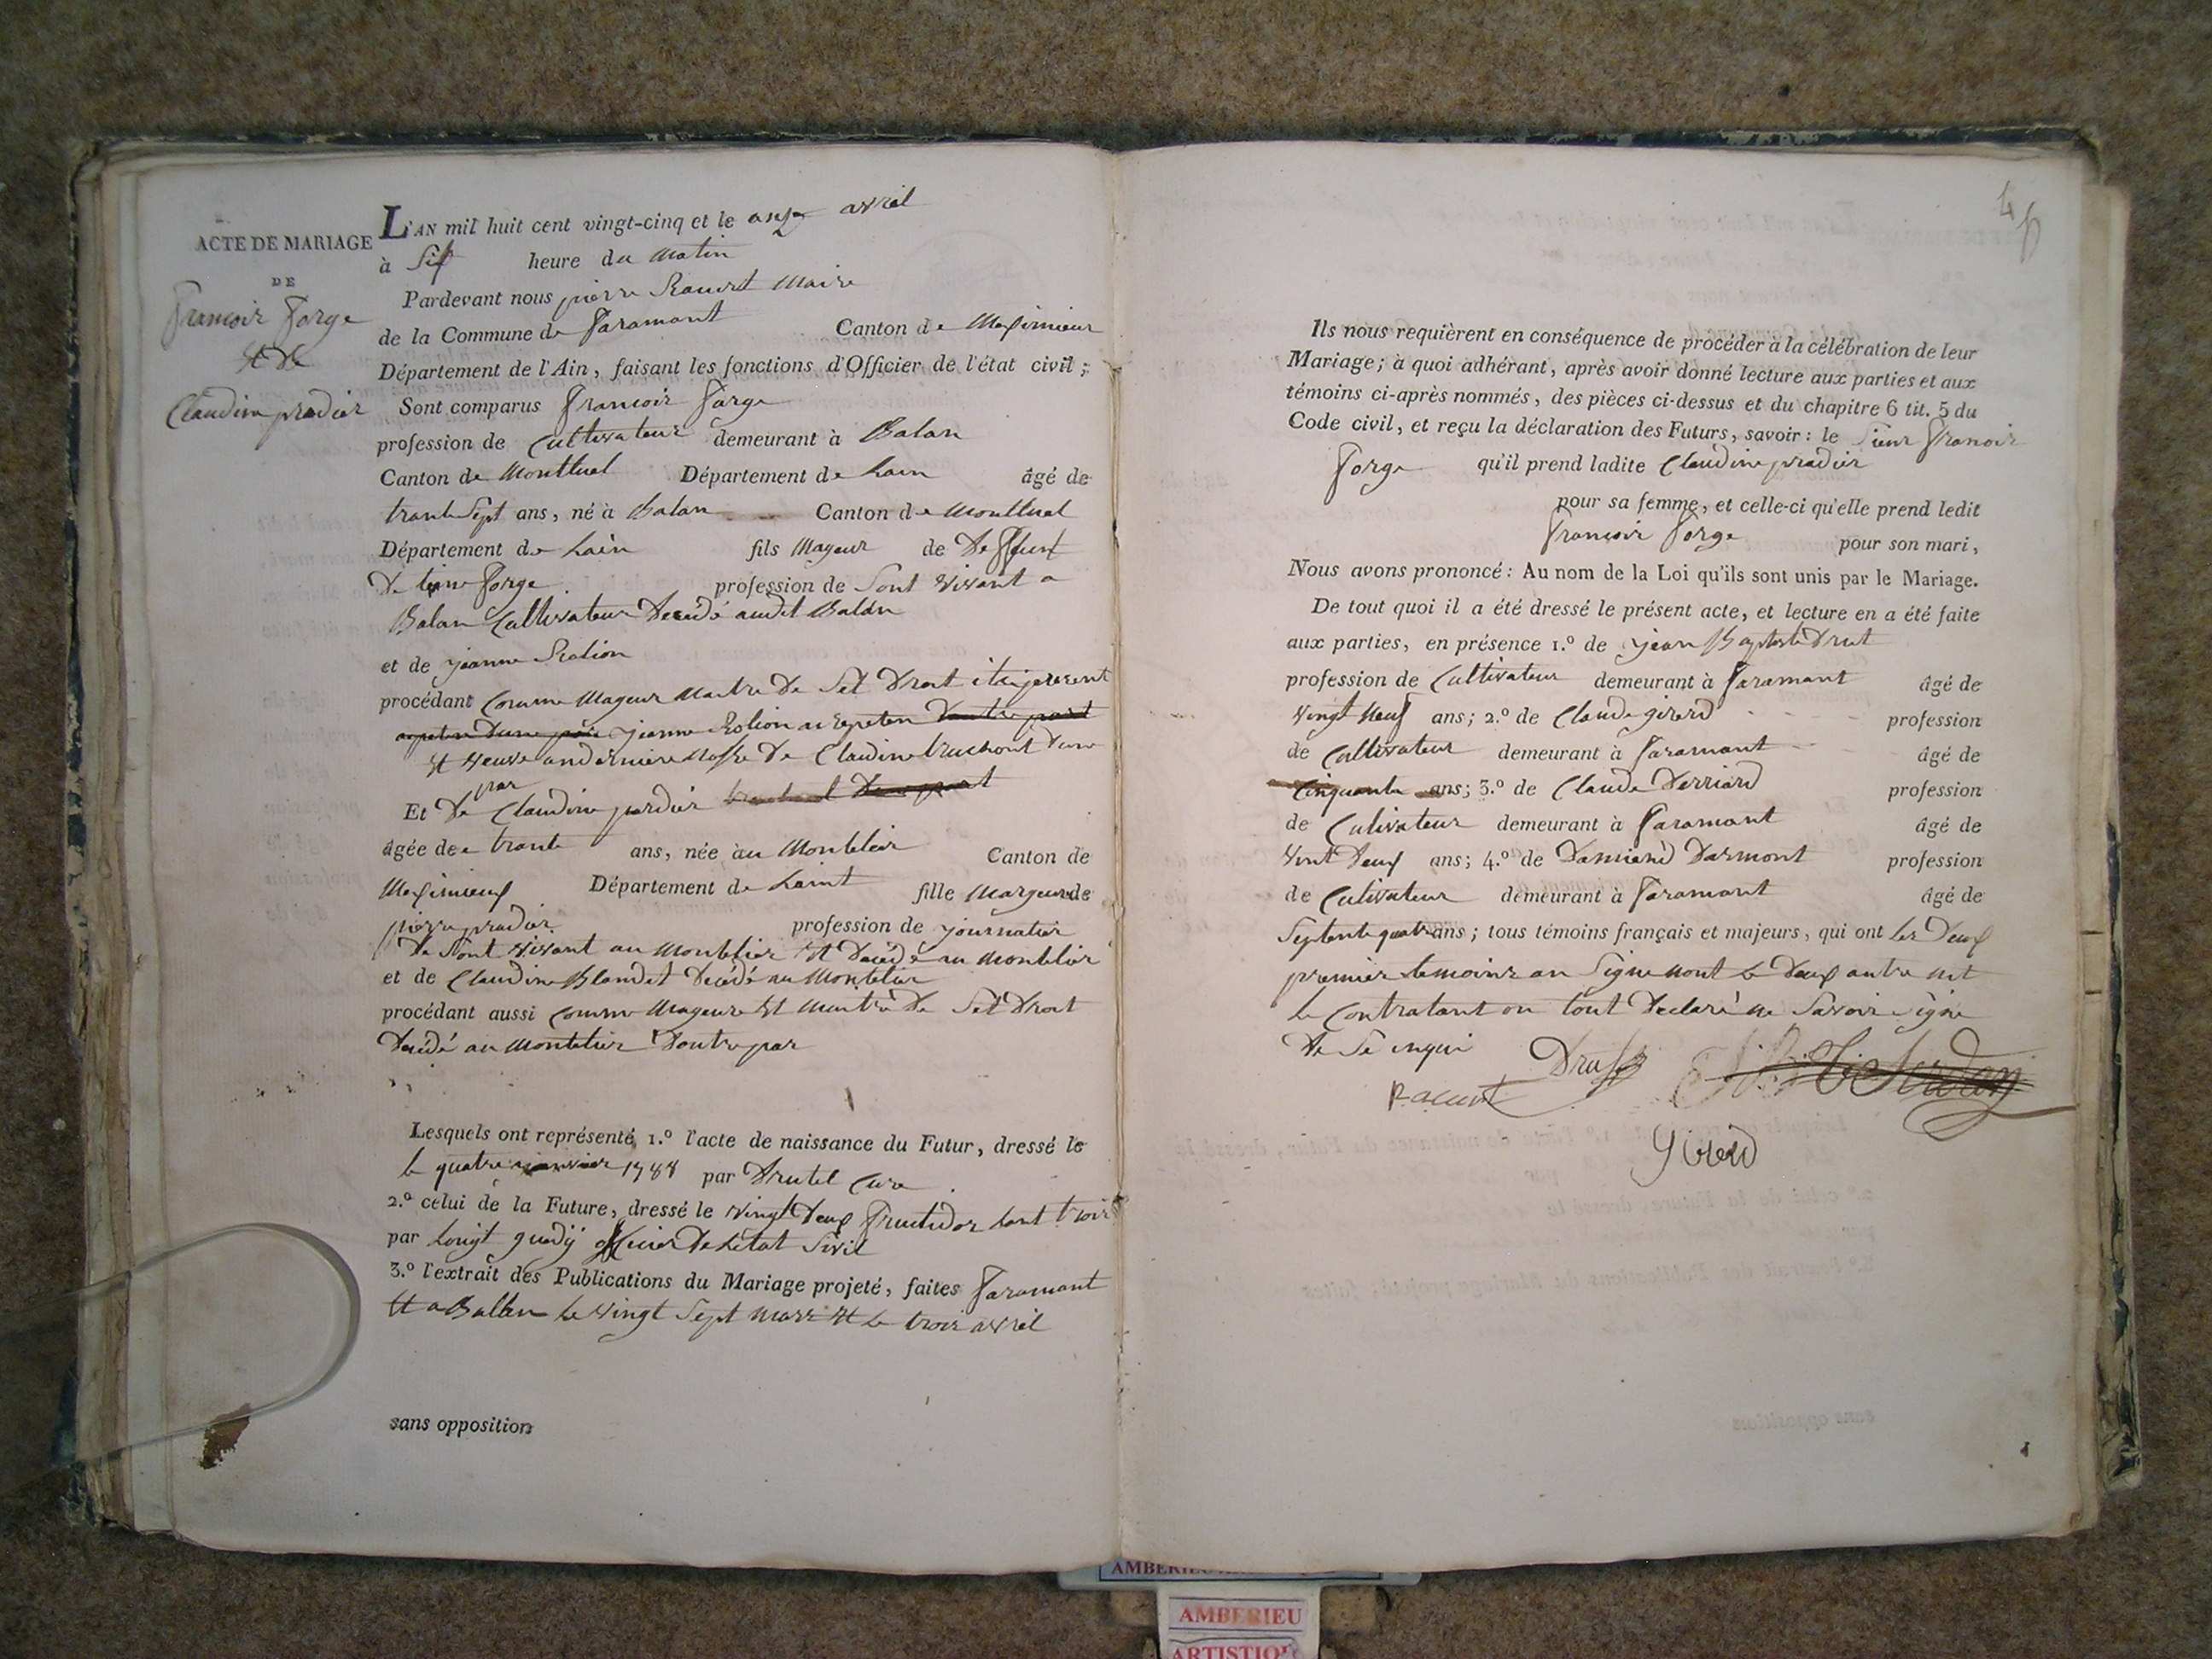 ACTE DE MARIAGE
DE
francoir forge
et de
Claudine pradier
L'AN mil huit cent vingt-cinq et le onze avril
à Six heure du matin
Pardevant nous pierre Racurt Maire
de la Commune de faramant Canton de Meximieux
Département de l'Ain, faisant les fonctions d'Officier de l'état civil ;
Sont comparus francoir forge
profession de Cultivateur demeurant à Balan
Canton de Montluel Département de Lain âgé de
trante Sept ans, né à Balan Canton de Montluel
Département de Lain fils Mageur de Deffunt
forge profession de Sont vivant a
Balan Cultivateur Décédé audit Balan
et de jeanne
procédant Comme Mageur Maitre de Set Droit
jeanne
et veuve de Claudine
par
Et de Claudine pardier
âgée de trante ans, née au Montelier Canton de
Meximieux Département de Laint fille Margeure de
pierre pradier profession de journalier
de Sont vivant au Montelier et décédé au Montelier
et de Claudine Blandet Décédé au Montelier
procédant aussi Comme Mageure et Maitre de Set Droit
Décédé au Montelier Doutre par
Lesquels ont représenté 1.º l'acte de naissance du Futur, dressé le
le quatre janvier 1788 par Drutel Cure
2.º celui de la Future, dressé le vingt Deux fructidor Lant trois
par officier De Létat Sivil
3.º l'extrait des Publications du Mariage projeté, faites faramant
et a Ballan Le vingt Sept Mars et Le trois avril
sans opposition
Ils nous requièrent en conséquence de procéder à la célébration de leur
Mariage ; à quoi adhérant, après avoir donné lecture aux parties et aux
témoins ci-après nommés, des pièces ci-dessus et du chapitre 6 tit. 5 du
Code civil, et reçu la déclaration des Futurs, savoir : le Sieur francoir
forge qu'il prend ladite Claudine pradier
pour sa femme, et celle-ci qu'elle prend ledit
francoir forge pour son mari,
Nous avons prononcé : Au nom de la Loi qu'ils sont unis par le Mariage.
De tout quoi il a été dressé le présent acte, et lecture en a été faite
aux parties, en présence 1.º de jean Baptiste Drut
profession de Cultivateur demeurant à faramant âgé de
vingt Neuf ans ; 2.º de Claude girerd profession
de Cultivateur demeurant à faramant âgé de
Cinquante ans ; 3.º de Claude Derriard profession
de Cultivateur demeurant à faramant âgé de
vint Deux ans ; 4.º de Darmont profession
de Cultivateur demeurant à faramant âgé de
Septente quatre ans ; tous témoins français et majeurs, qui ont Les Deux
premier temoins on Signe nont Le Deux autre nit
Le Contratant on tout Declaré ne Savoir Signe
De Se
Racurt
Girerd
AMBERIEU
AMBERIEU
ARTISTIQUE